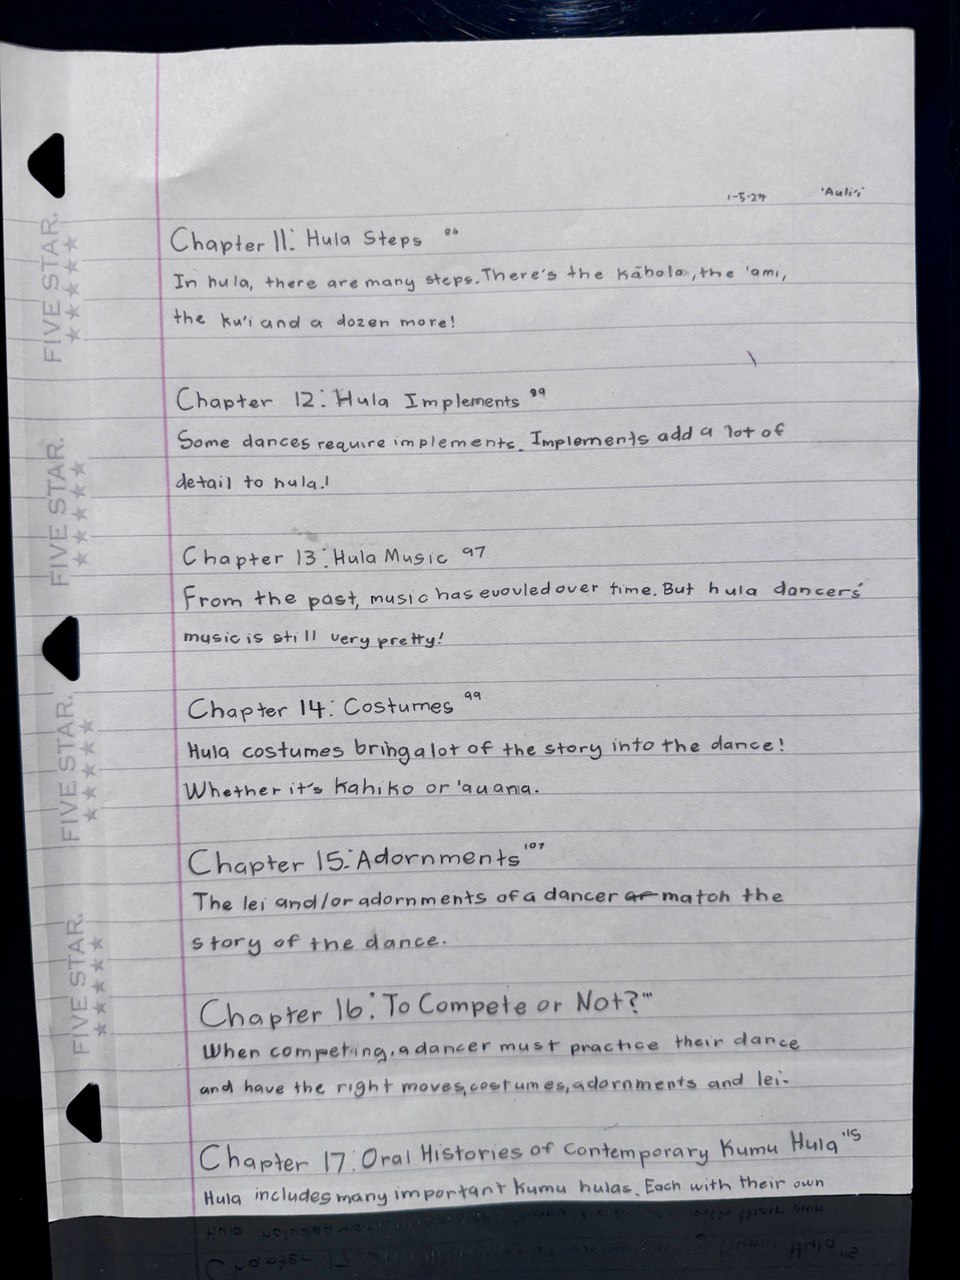 1-5-24 'Auli'i
Chapter 11: Hula Steps 86
In hula, there are many steps. There's the Kāholo, the 'ami,
the ku'i and a dozen more!
Chapter 12: Hula Implements 89
Some dances require implements. Implements add a lot of
detail to hula!
Chapter 13: Hula Music 97
From the past, music has evovled over time. But hula dancers'
music is still very pretty!
Chapter 14: Costumes 99
Hula costumes bring a lot of the story into the dance!
Whether it's Kahiko or 'auana.
Chapter 15: Adornments 107
The lei and/or adornments of a dancer ar match the
story of the dance.
Chapter 16: To Compete or Not? 111
When competing, a dancer must practice their dance
and have the right moves, costumes, adornments and lei.
Chapter 17: Oral Histories of Contemporary Kumu Hula 115
Hula includes many important Kumu hulas. Each with their own
FIVE STAR.
FIVE STAR.
FIVE STAR.
FIVE STAR.